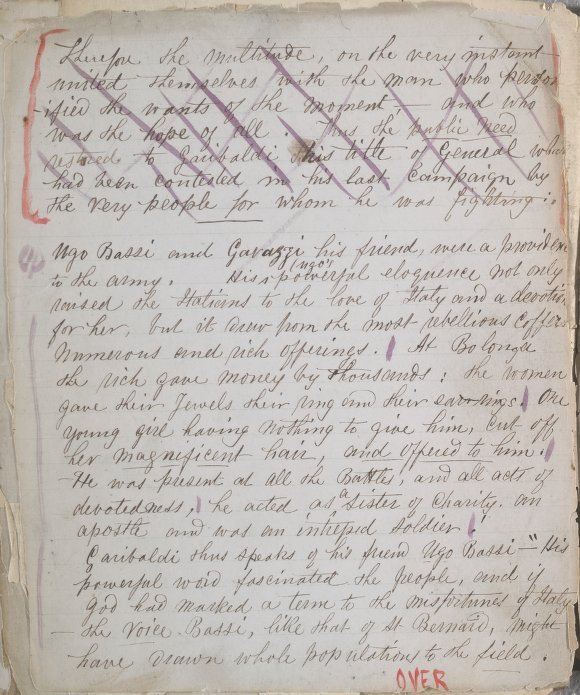 Therefore the multitude, on the very instant
united themselves with the man who person
-ified the wants of the moment, — and who
was the hope of all. Thus the public Need
restored to Garibaldi this title of General which
had been contested in his last Campaign by
the very people for whom he was fighting:.
Ugo Bassi and Gavazzi his friend, were a providence
to the army. His (ugo's) powerful eloquence not only
raised the Italians to the love of Italy and a devotion
for her, but it drew from the most rebellious coffers
Numerous and rich offerings. At Bolonga
the rich gave money by thousands: the women
gave their Jewels their ring and their earrings! One
young girl having Nothing to give him, cut off
her magnificent hair, and offered to him.!
He was present at all the Battles, and all acts of
devotedness, he acted as a Sister of Charity. an
apostle and was an intrepid soldier!
Garibaldi thus speaks of his friend Ugo Bassi — "His
powerful word fascinated the people, and if
God had marked a term to the misfortunes of Italy
— the Voice Bassi, like that of St Bernard, might
have drawn whole populations to the field.
OVER